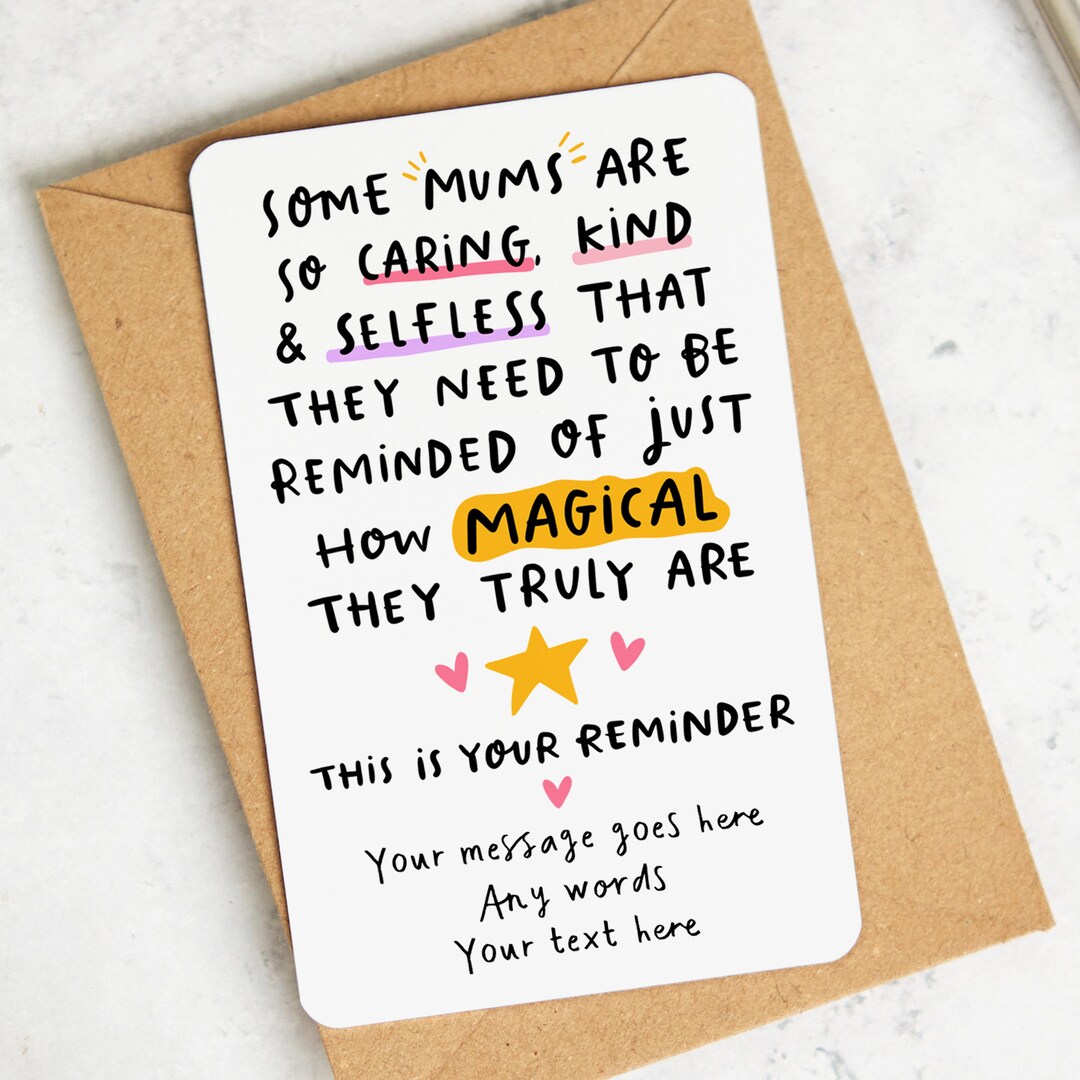 SOME MUMS ARE
SO CARING, KIND
& SELFLESS THAT
THEY NEED TO BE
REMINDED OF JUST
HOW MAGICAL
THEY TRULY ARE
THIS IS YOUR REMINDER
Your message goes here
Any words
Your text here